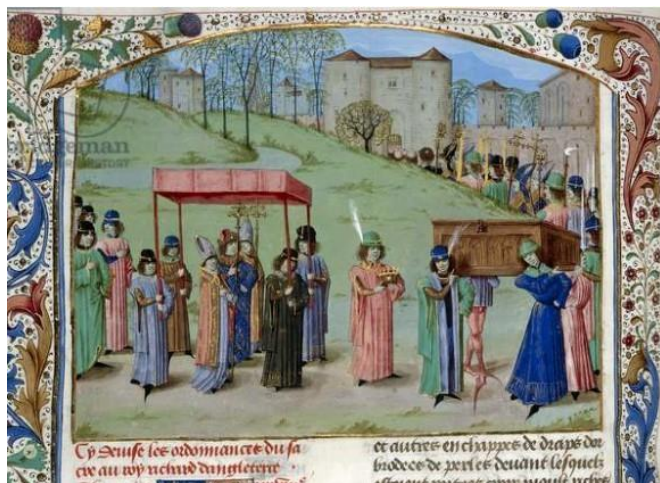 Cy deuise les ordonnances du sa
cre au roy richard dangleterre
et autres en chappes de draps dor
brodees de perles deuant lesquelz